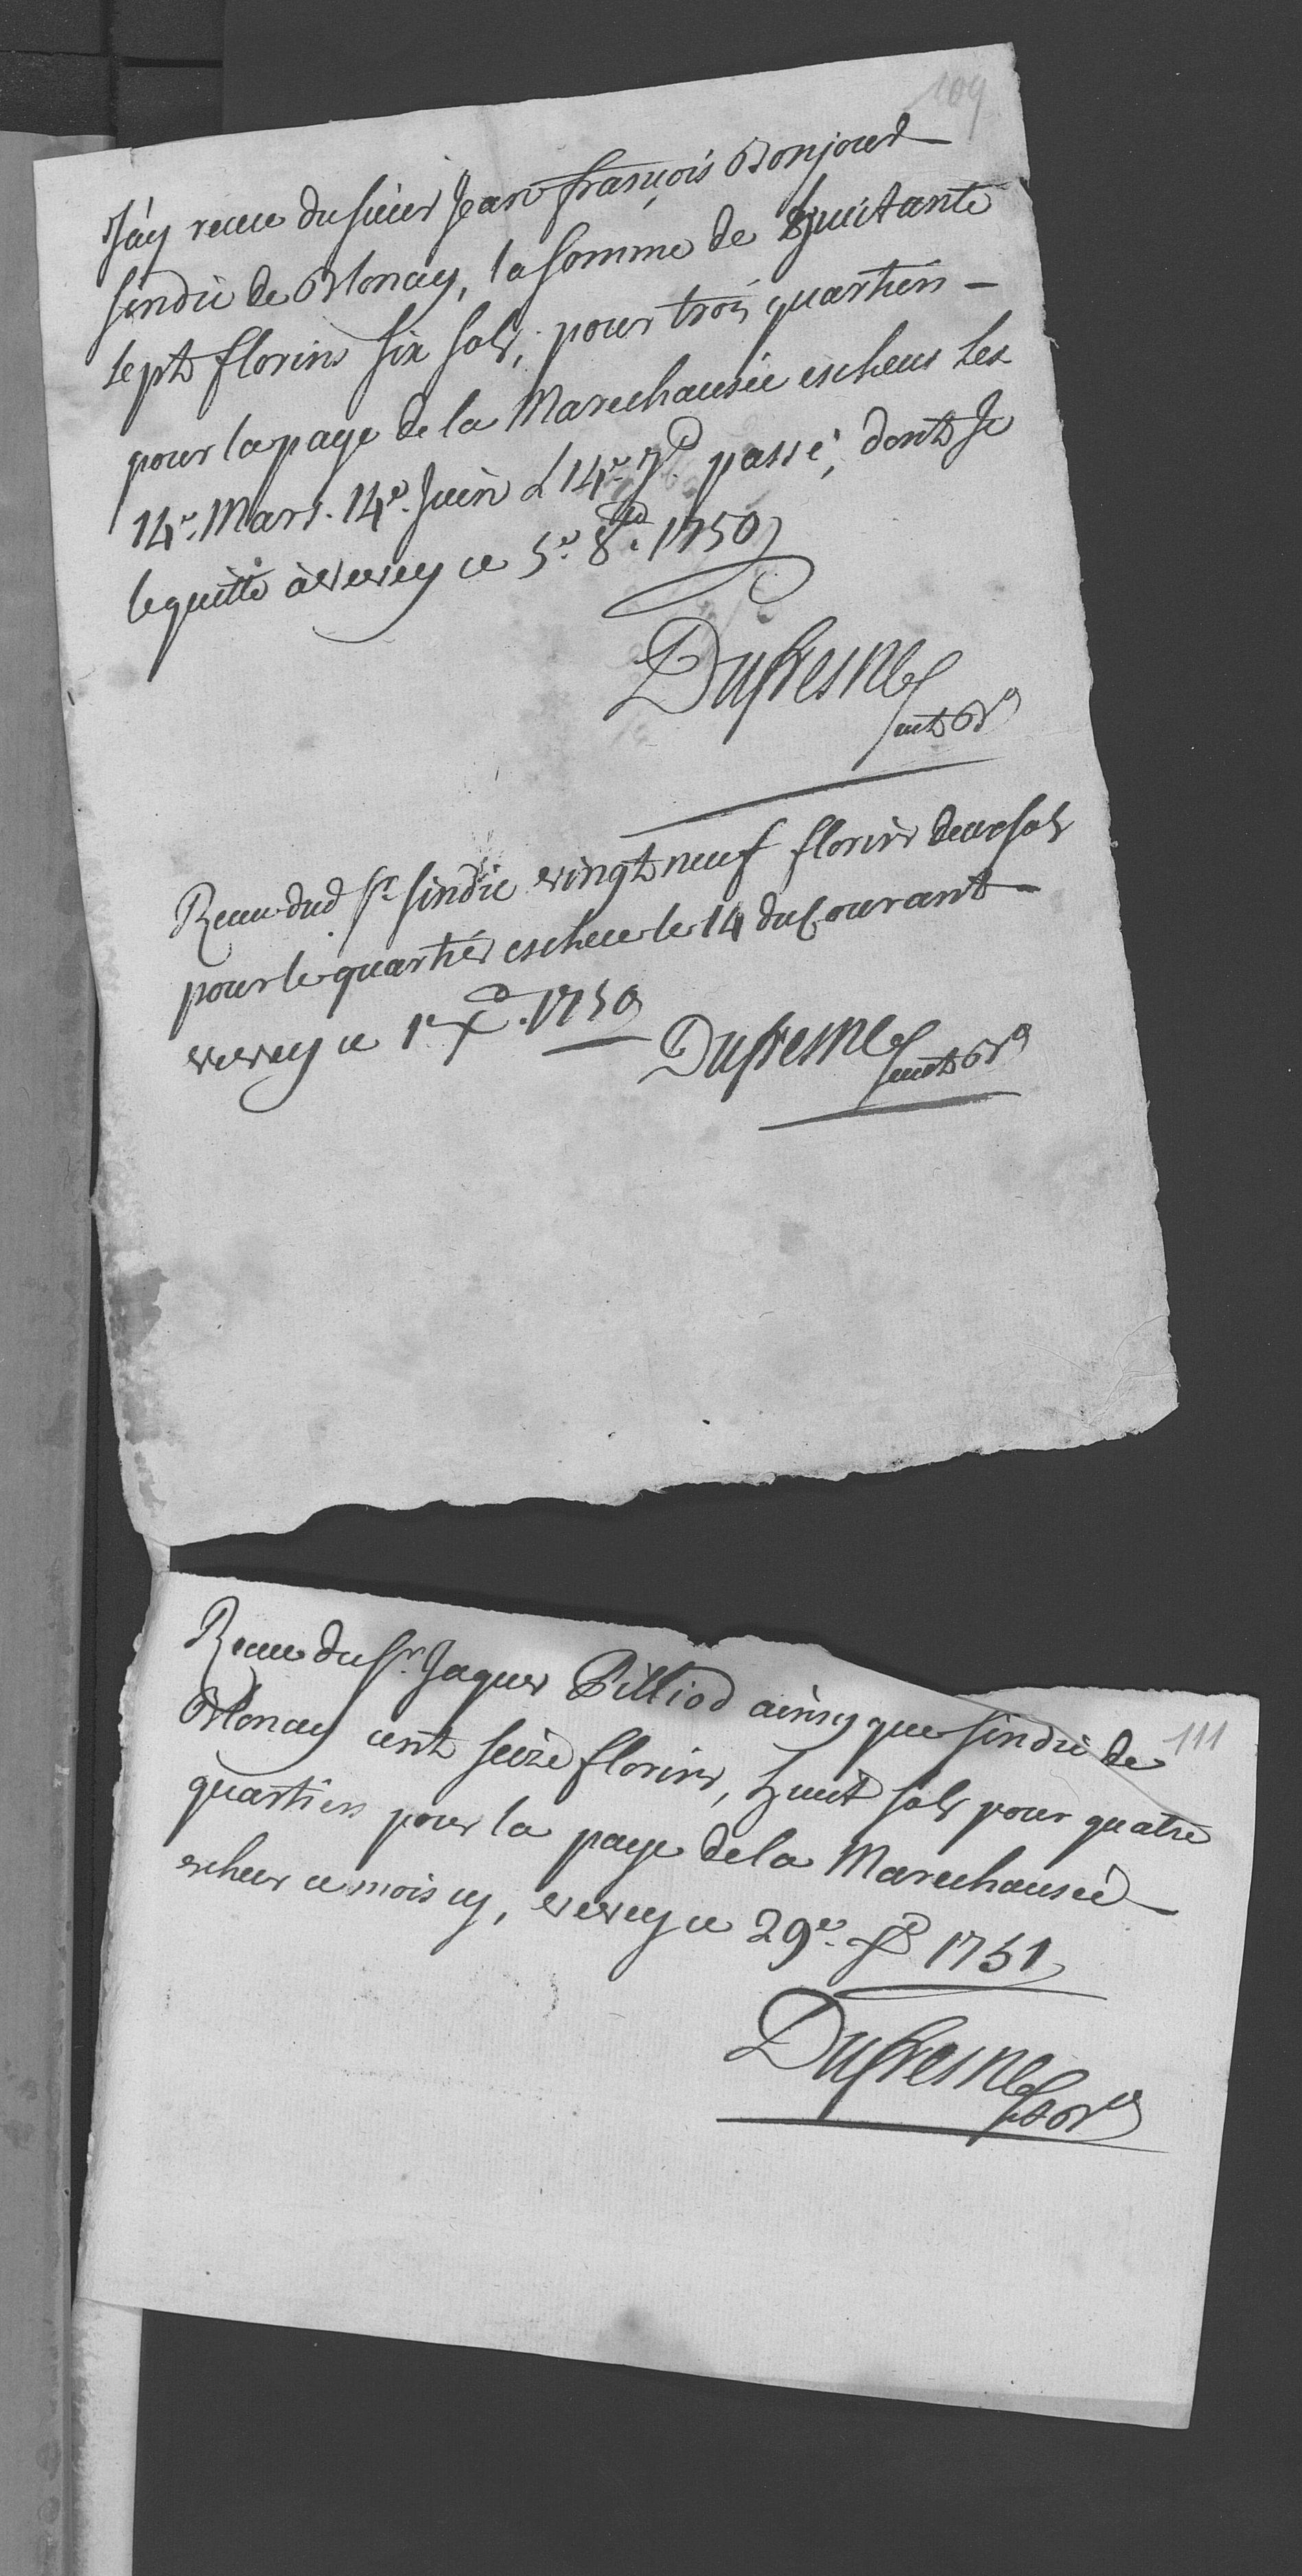 109
J'ay receu du sieur Jean françois Bonjour
sindic de Blonay, la somme de huitante
sept florins six sols, pour trois quartiers
pour la paye de la Marechausée escheus les
14e. Mars. 14e. Juin & 14e. 7b. passé, dont Je
le quitte à Vevey ce 5e. 8b. 1750
Dufresne
Receu dud sr. sindic vingt neuf florins deux sols
pour le quartier escheu le 14 du Courant
Vevey ce X. 1750
Dufresne
111
Receu du sr. Jaques Pilliod ainsy que sindic de
Blonay cent seize florins, huit sols pour quatre
quartiers pour la paye de la Marechausée
escheus ce mois cy, Vevey ce 29e. Xb 1751
Dufresne